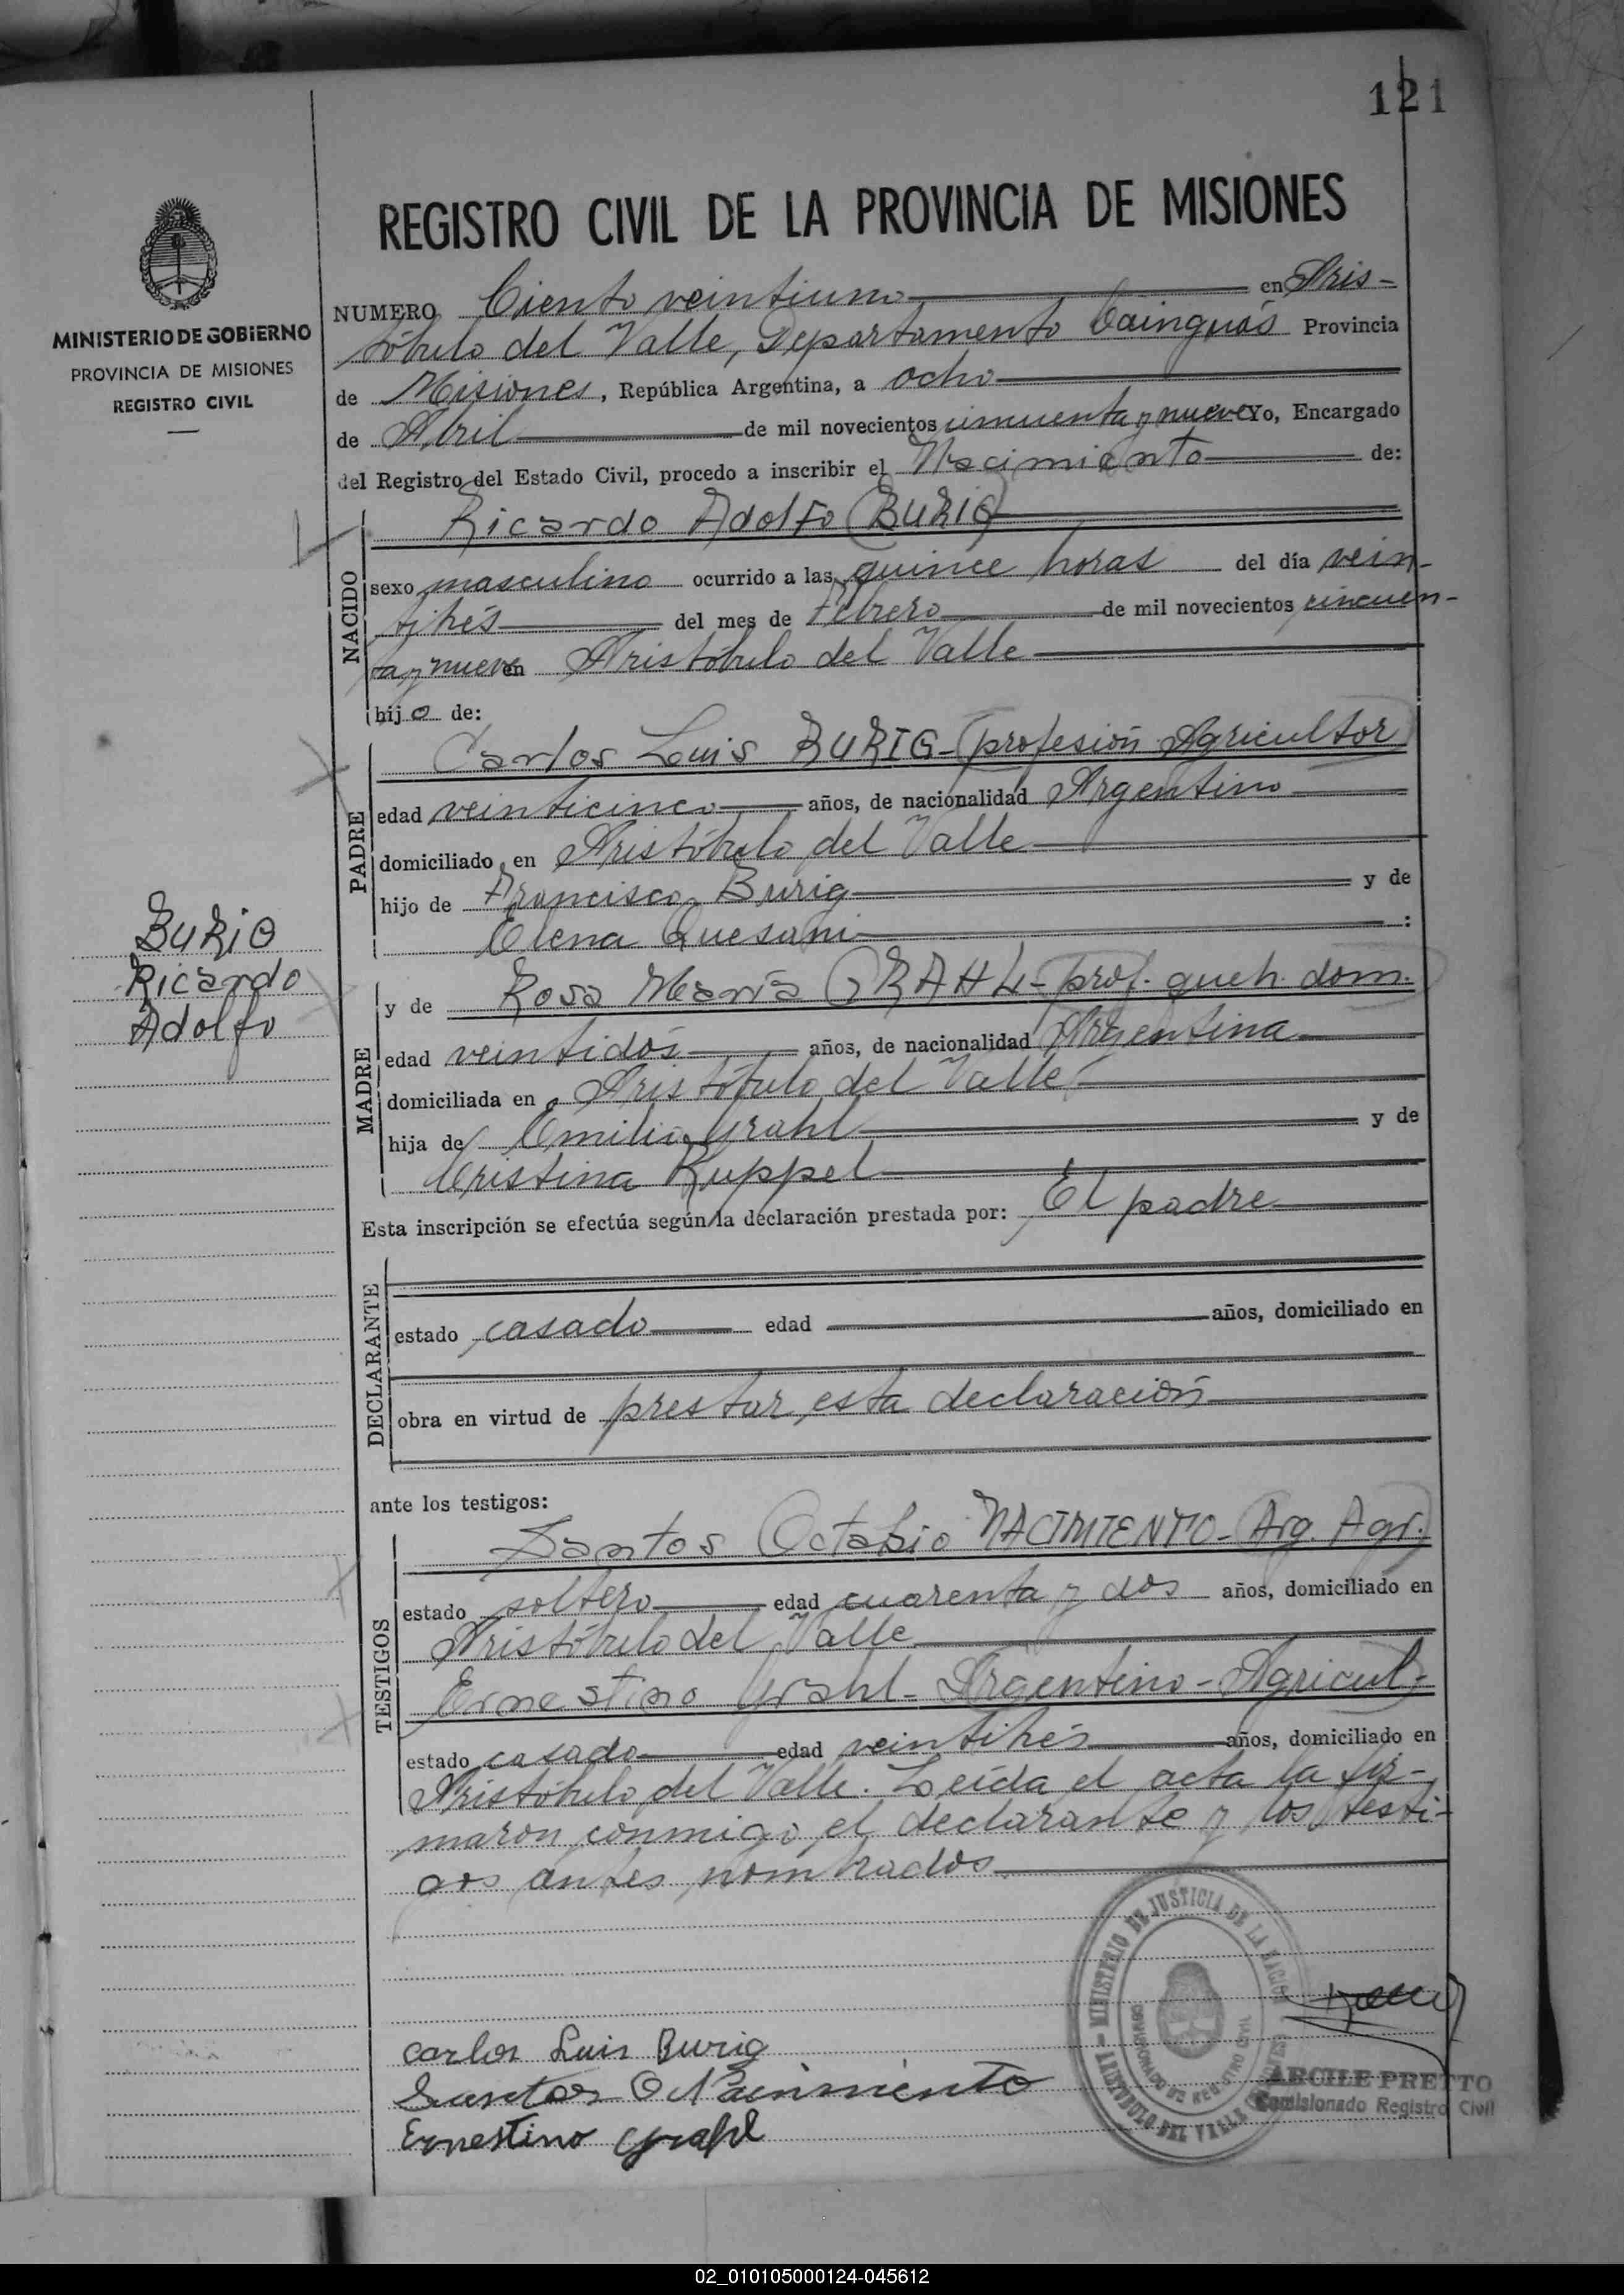 121
REGISTRO CIVIL DE LA PROVINCIA DE MISIONES
MINISTERIO DE GOBIERNO
PROVINCIA DE MISIONES
REGISTRO CIVIL
NUMERO Ciento veintiuno en Aris-
tóbulo del Valle, Departamento Cainguás Provincia
de Misiones, República Argentina, a ocho
de Abril de mil novecientos cincuenta y nueve Yo, Encargado
del Registro del Estado Civil, procedo a inscribir el Nacimiento de:
Ricardo Adolfo BURIG
NACIDO
sexo masculino ocurrido a las quince horas del día vein-
titrés del mes de Febrero de mil novecientos cincuen-
ta y nueve en Aristóbulo del Valle
hijo de:
Carlos Luis BURIG - profesión Agricultor
PADRE
edad veinticinco años, de nacionalidad Argentino
domiciliado en Aristóbulo del Valle
hijo de Francisco Burig y de
Elena Quesani:
BURIG
Ricardo
Adolfo
y de Rosa María GRAHL - prof. queh. dom.
MADRE
edad veintidos años, de nacionalidad Argentina
domiciliada en Aristóbulo del Valle
hija de Emilio Grahl y de
Cristina Ruppel
Esta inscripción se efectúa según la declaración prestada por: El padre
DECLARANTE
estado casado edad años, domiciliado en
obra en virtud de prestar esta declaración
ante los testigos:
Santos Octabio NACIMIENTO - Arg. Agr.
TESTIGOS
estado soltero edad cuarenta y dos años, domiciliado en
Aristóbulo del Valle
Ernestino Grahl - Argentino - Agricul-
estado casado edad veintitrés años, domiciliado en
Aristóbulo del Valle. Leída el acta la fir-
maron conmigo el declarante y los testi-
gos antes nombrados
MINISTERIO DE JUSTICIA DE LA NACION
ARISTOBULO DEL VALLE
Carlos Luis Burig
Santos O Nacimiento
Ernestino Grahl
ARCILE PRETTO
Comisionado Registro Civil
02_010105000124-045612